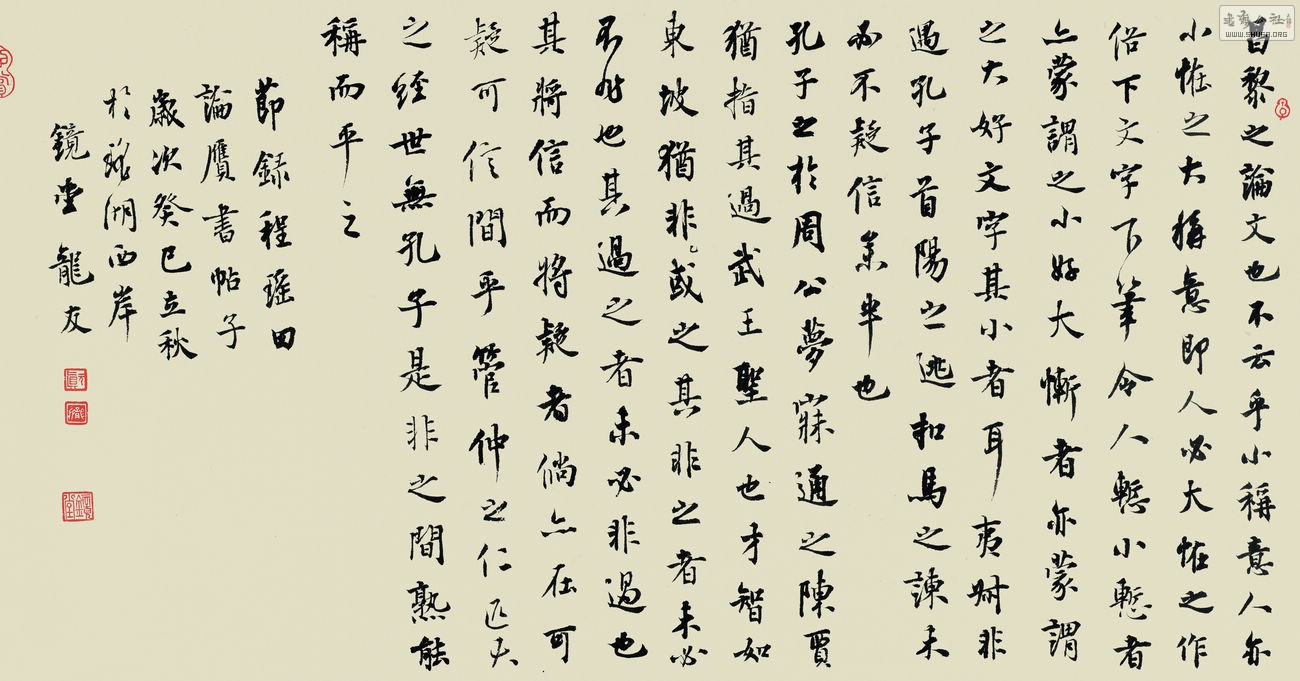 昌黎之論文也不云乎小稱意人亦
小恠之大稱意即人必大恠之作
俗下文字下筆令人慙小慙者
亦蒙謂之小好大慚者亦蒙謂
之大好文字其小者耳夷村非
遇孔子首陽之逃扣馬之諫未
必不疑信相半也
孔子之於周公夢寐通之陳賈
猶指其過武王聖人也才智如
東坡猶非之或之其非之者未必
不非也其過之者未必非過也
其將信而將疑者倘亦在可
疑可信間乎管仲之仁匹夫
之經世無孔子是非之間孰能
稱而平之
節錄程瑤田
論贋書帖子
歲次癸巳立秋
於 湖西岸
鏡堂龍友
WWW.SHUSA.ORG